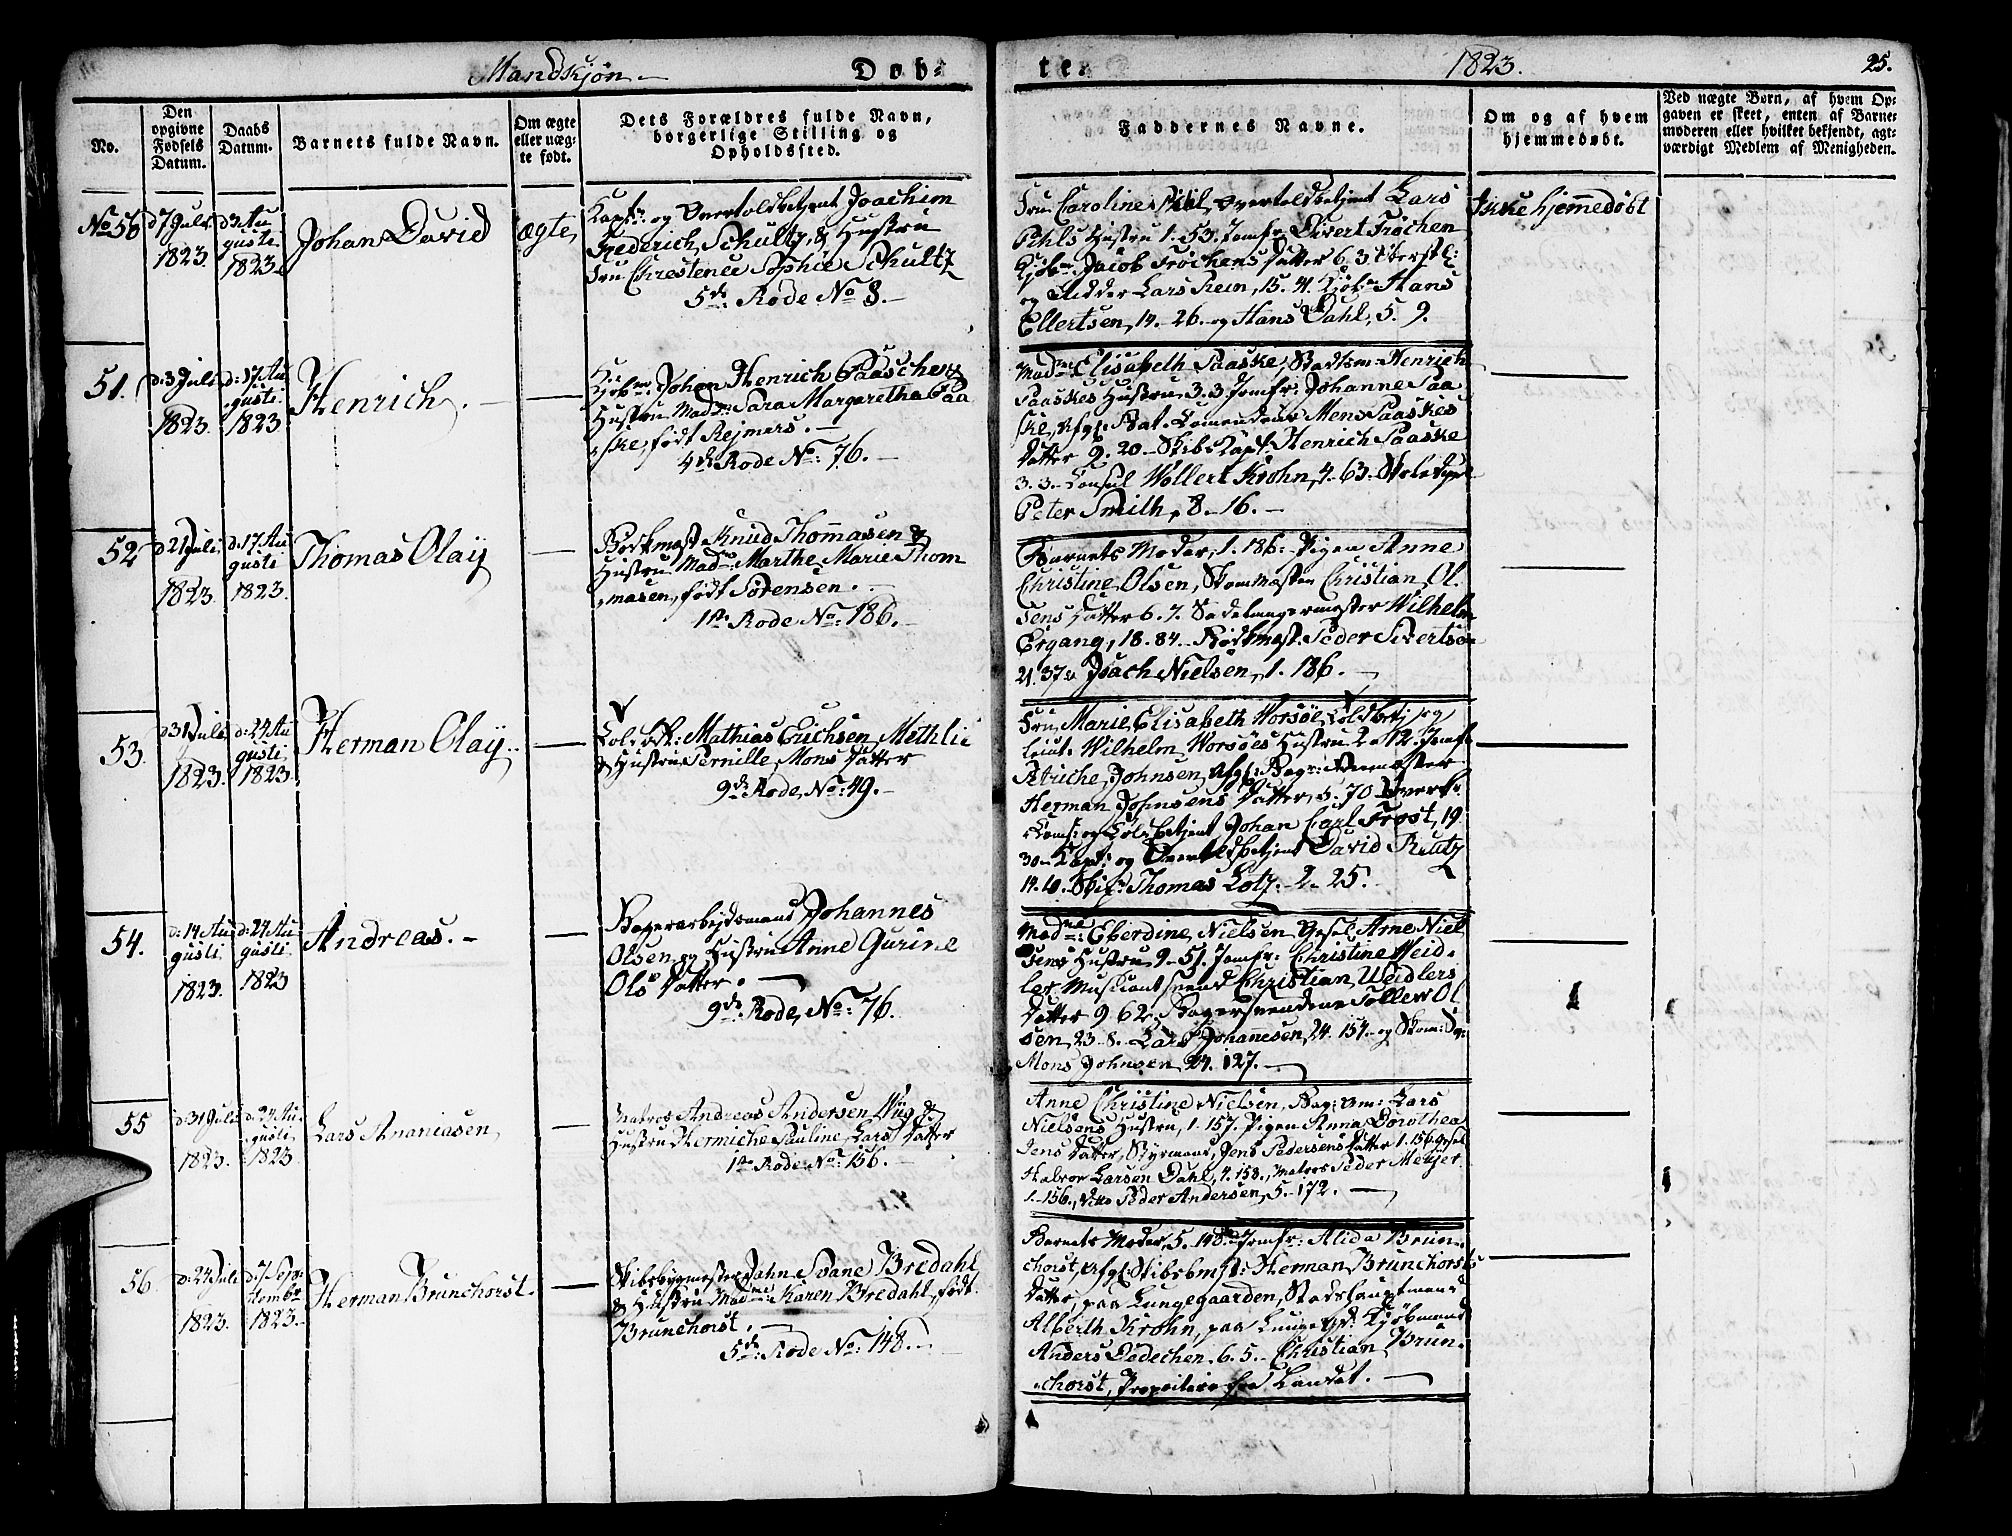 Mandkjøn
Døb-
te.
1823.
25.
No.
Den
opgivne
Fødsels
Datum.
Daabs
Datum.
Barnets fulde Navn.
Om ægte
eller uæg-
te født.
Dets Forældres fulde Navn,
borgerlige Stilling og
Opholdssted.
Faddernes Navne.
Om og af hvem
hjemmedøbt.
Ved uægte Børn, af hvem Op-
gaven er skeet, enten af Barne-
moderen eller hvilket bekjendt, agt-
værdigt Medlem af Menigheden.
No 50
d 7 Juli
1823.
d 3 Au
gusti
1823.
Johan David
ægte
Kapt: og Overtoldbetjent Joachim
Frederich Schultz, & Hustru
Fru Chrestence Sophie Schultz
5te Rode No 8.
Fru Caroline Pihl, Overtoldbetjent Lars
Pihls Hustru 1. 53. Jomfr: Divert Frøchen
Kjøbm: Jacob Frøchens Datter 6. 3. Oberstl:
og Ridder Lars Rein, 15. 4. Kjøbm Hans
Ellertsen, 14. 26. og Hans Dahl, 5. 9.
Ikke hjemmedøbt
51.
d: 3 Juli
1823.
d: 17 Au
gusti
1823
Henrich.
Kjøbm: Johan Henrich Paaske &
Hustru Mad: Sara Margaretha Paa
ske, født Rejmers.
4de Rode No: 76.
Madme Elisabeth Paaske, Henrich
Paaskes Hustru 3. 3. Jomfr: Johanne Paa
ske, Afg: Mens Paaskes
Datter 9. 20 Skibs Kapt: Henrich Paaske
3. 3. Consul Wollert Krohn, 4. 63.
Peter Smith, 8. 16.
52
d 21 Juli
1823.
d: 17 Au
gusti
1823.
Thomas Olay
Bødkmest Knud Thommasen &
Hustru Madme: Marthe Marie Thom
masen, født Sørensen.
1ste Rode No: 186.
Barnets Moder, 1. 186. Pigen Anne
Christine Olsen, Skommester Christian Ol
sens Datter 6. 7. Sadelmagermester Wilhelm
Ergang, 18. 84. Bødkmest: Peder Sivertsen
21. 37 & Joach Nielsen, 1. 186.
53.
d 31 Juli
1823.
d: 24 Au
gusti
1823.
Herman Olay.
Mathias Erichsen Methlie
& Hustru Pernille Mons Datter
9de Rode No: 49.
Fru Marie Elisabeth Worsøe, Toldbetj og
Leiut: Wilhelm Worsøes Hustru 2. 12. Jomfr
Johnsen, Afg:
Herman Johnsens Datter, 5. 70
og Toldbetjent Johan Carl Frost, 19.
30. Kapt: og Overtoldbetjent David Reutz
14. 10. Skip: Thomas Lotz. 2. 25.
54.
d: 14 Au
gusti
1823.
d: 24 Au
gusti
1823
Andreas.
Bagerarbejdsmand Johannes
Olsen og Hustru Anne Gurine
Ols Datter.
9de Rode, No: 76.
Madme: Eberdine Nielsen Gesel Arne Niel
sens Hustru 9. 51. Jomfr: Christine Weid
ler Musicant svend Christian Weidlers
Datter 9 62. Bagersvendene Tollev Ol
sen 23. 8. Lars Johannesen, 24. 154. og
Mons Johnsen 24. 127.
55
d: 31 Juli
1823.
d: 24 Au
gusti
1823
Lars Ananiasen
Matros Andreas Andersen Wiig &
Hustru Hermiche Pauline Lars Datter
1te Rode No: 156.
Anne Christine Nielsen, Lars
Nielsens Hustru, 1. 157. Pigen Anna Dorothea
Jens Datter, Styrmand Jens Pedersens Datter 1. 156. Gesel
Halvor Larsen Dahl, 4. 158. Matros Peder Meyer
1. 156. Peder Andersen, 5. 172.
56
d: 24 Juli
1823.
d: 7 Sep
tember
1823.
Herman Brunchorst.
Skibsbygmester Jahn Svane Bredahl
& Hustru Madme: Karen Bredahl, født
Brunchorst.
5te Rode No: 148.
Barnets Moder, 5. 148. Jomfr: Alida Brun
chorst, Afg: Skibsbmst: Herman Brunchorsts
Datter, paa Lungegaarden, Stadshauptmand
Alberth Krohn, paa Lungegd: Kjøbmand
Anders Dedechen. 6. 5. Christian Brun
chorst, Proprietær paa Landet.